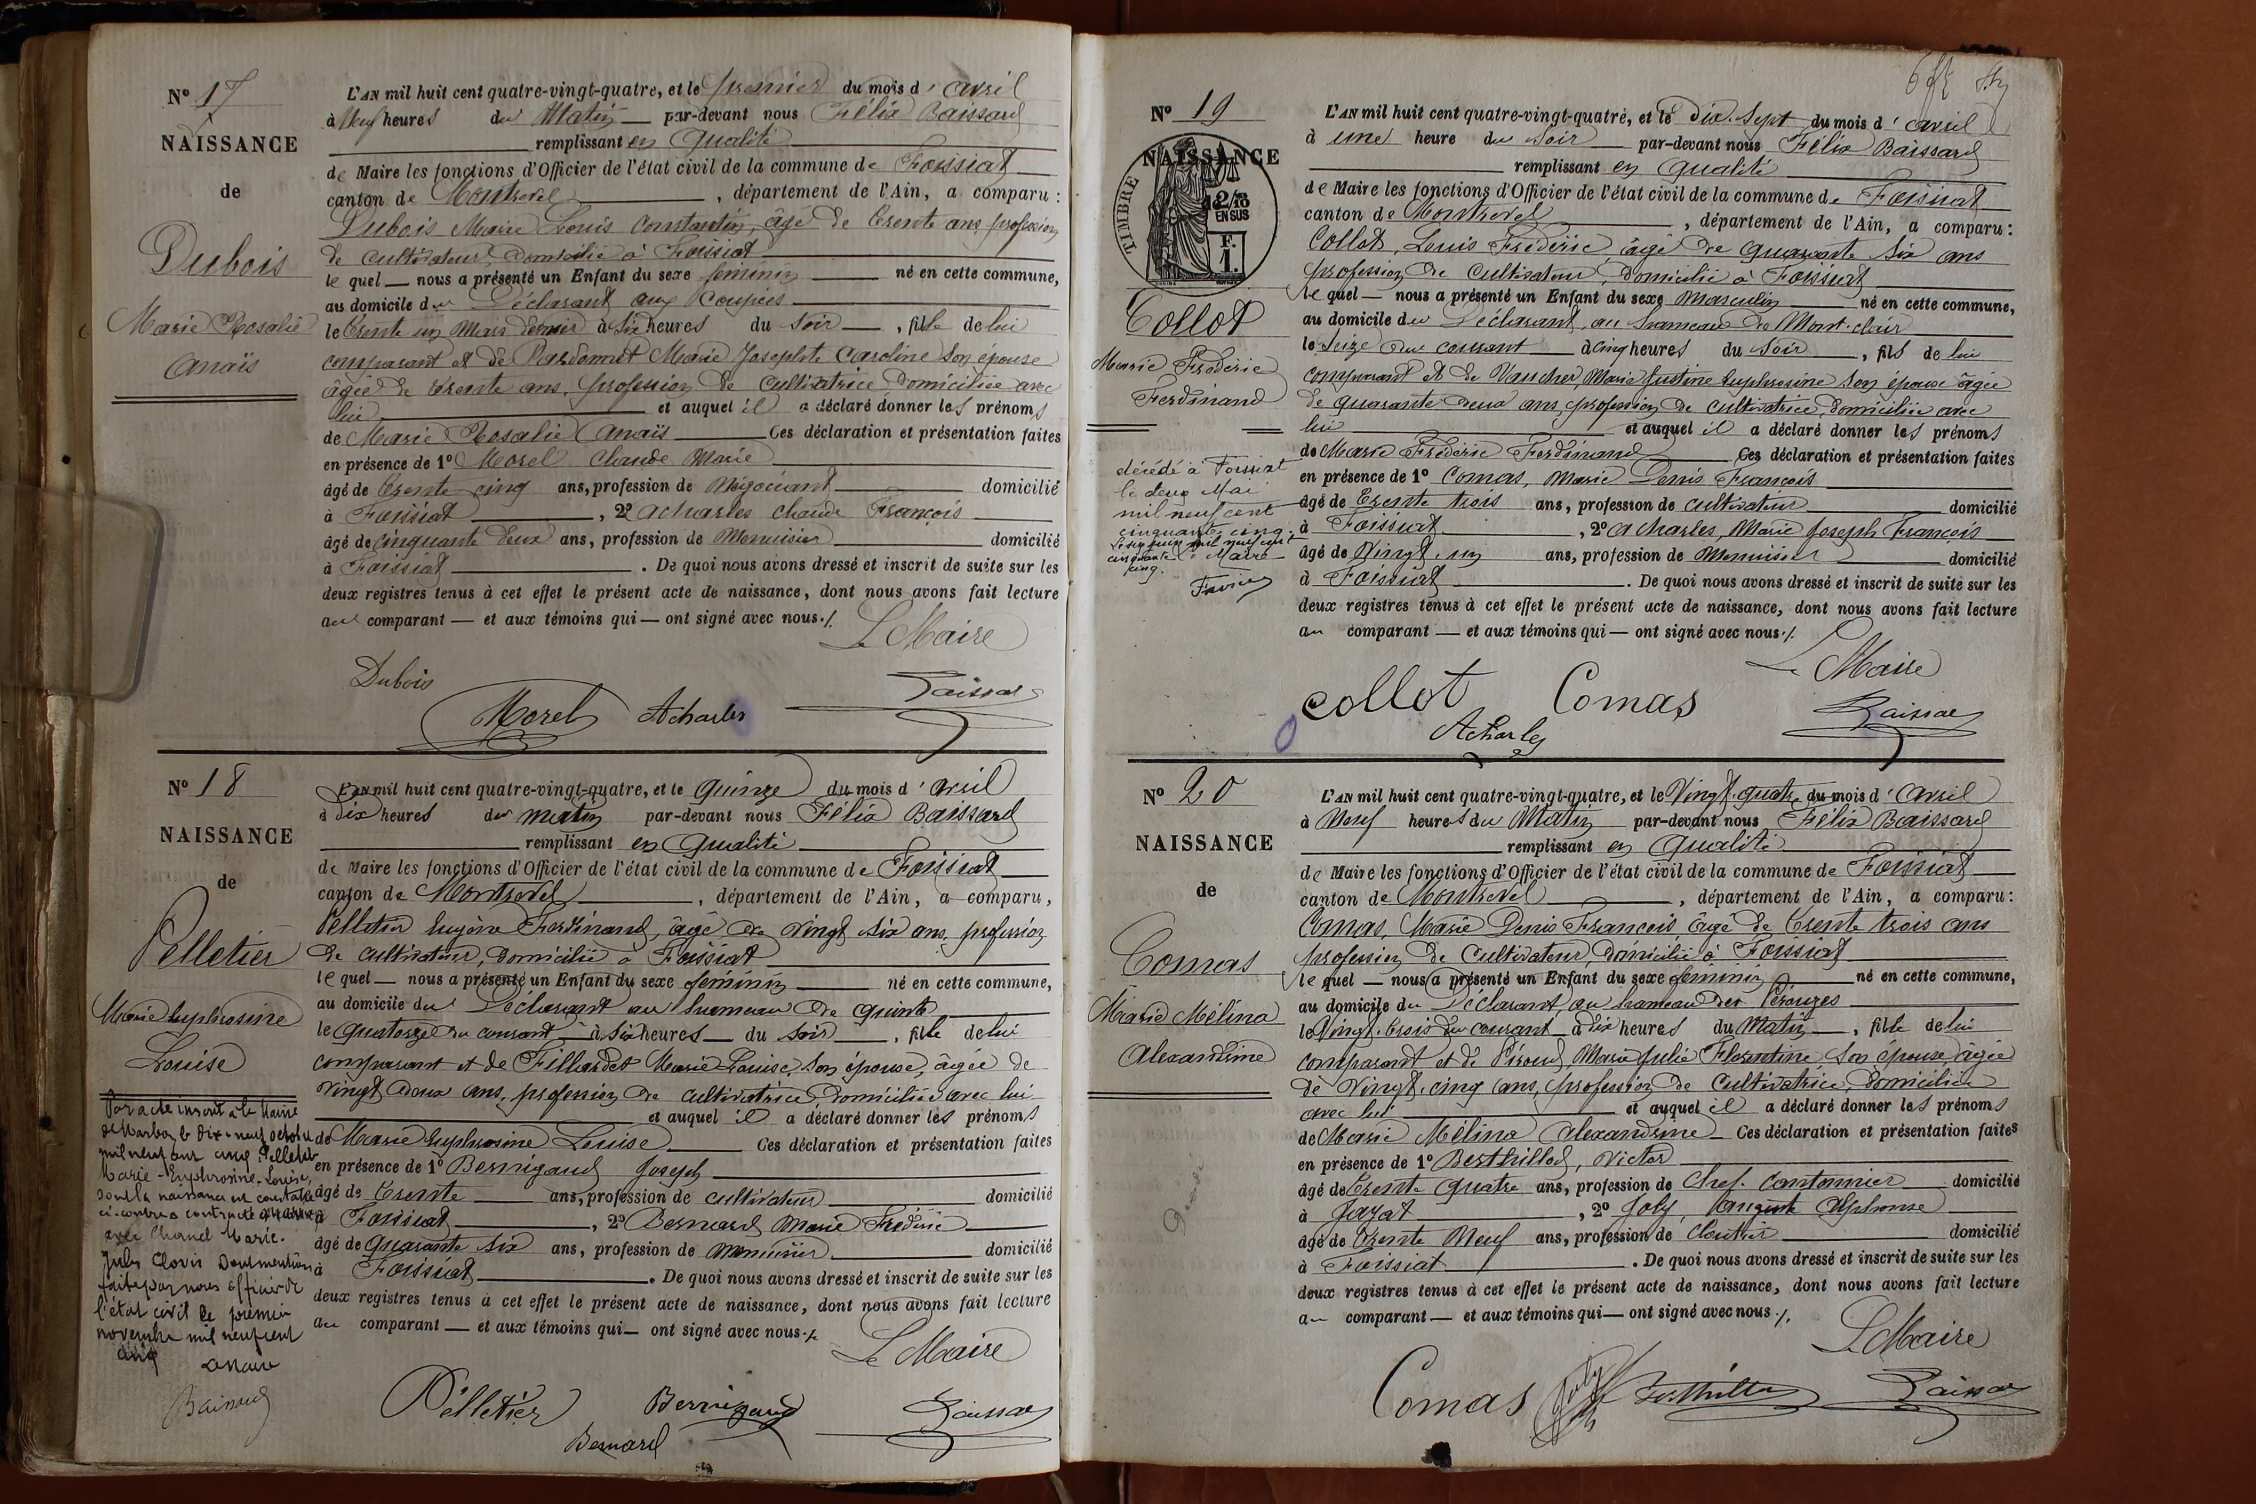 N° 17
NAISSANCE
de
Dubois
Marie Rosalie
Anaïs
L'AN mil huit cent quatre-vingt-quatre, et le premier du mois d'avril
à Neuf heures du Matin par-devant nous Félix Baissard
remplissant en qualité
de Maire les fonctions d'Officier de l'état civil de la commune de Foissiat
canton de Montrevel, département de l'Ain, a comparu :
Dubois Marie Louis Constantin, âgé de trente ans, profession
de cultivateur, domicilié à Foissiat
le quel nous a présenté un Enfant du sexe féminin né en cette commune,
au domicile du Déclarant aux
le trente un Mars dernier à six heures du soir, fille de lui
comparant et de Marie Josephte Caroline son épouse
âgée de trente ans, profession de cultivatrice, domiciliée avec
lui et auquel il a déclaré donner les prénoms
de Marie Rosalie Anaïs Ces déclaration et présentation faites
en présence de 1° Morel Claude Marie
âgé de trente cinq ans, profession de Négociant domicilié
à Foissiat, 2° Acharles Claude François
âgé de cinquante deux ans, profession de Menuisier domicilié
à Foissiat. De quoi nous avons dressé et inscrit de suite sur les
deux registres tenus à cet effet le présent acte de naissance, dont nous avons fait lecture
au comparant et aux témoins qui ont signé avec nous ./.
Le Maire
Dubois
Morel Acharles Baissard
N° 18
NAISSANCE
de
Pelletier
Marie Euphrosine
Louise
Par acte inscrit à la Mairie
de Marboz le dix-neuf octobre
mil neuf cent cinq Pelletier
Marie-Euphrosine-Louise,
dont la naissance est constatée
ci-contre a contracté mariage
avec Charnel Marie-
Jules Clovis Dont mention
faite par nous officier de
l'état civil le premier
novembre mil neuf cent
cinq
Le Maire
Baissard
L'AN mil huit cent quatre-vingt-quatre, et le quinze du mois d'avril
à Dix heures du matin par-devant nous Félix Baissard
remplissant en qualité
de Maire les fonctions d'Officier de l'état civil de la commune de Foissiat
canton de Montrevel, département de l'Ain, a comparu,
Pelletier Eugène Ferdinand, âgé de vingt six ans, profession
de cultivateur, domicilié à Foissiat
le quel nous a présenté un Enfant du sexe féminin né en cette commune,
au domicile du Déclarant au hameau de
le quatorze du courant à six heures du soir, fille de lui
comparant et de Filliardet Marie Louise, son épouse, âgée de
vingt deux ans, profession de cultivatrice, domiciliée avec lui
et auquel il a déclaré donner les prénoms
de Marie Euphrosine Louise Ces déclaration et présentation faites
en présence de 1° Bernigaud Joseph
âgé de trente ans, profession de cultivateur domicilié
à Foissiat, 2° Bernard Marie Frédéric
âgé de quarante six ans, profession de Menuisier domicilié
à Foissiat. De quoi nous avons dressé et inscrit de suite sur les
deux registres tenus à cet effet le présent acte de naissance, dont nous avons fait lecture
au comparant et aux témoins qui ont signé avec nous ./.
Le Maire
Pelletier Bernigaud Baissard
Bernard
N° 19
NAISSANCE
TIMBRE
2/10
EN SUS
F.
1.
Collot
Marie Frédéric
Ferdinand
décédé à Foissiat
le deux Mai
mil neuf cent
cinquante cinq.
Le Maire
L'AN mil huit cent quatre-vingt-quatre, et le dix-sept du mois d'avril
à une heure du soir par-devant nous Félix Baissard
remplissant en qualité
de Maire les fonctions d'Officier de l'état civil de la commune de Foissiat
canton de Montrevel, département de l'Ain, a comparu :
Collot, Louis Frédéric, âgé de quarante six ans
profession de cultivateur, domicilié à Foissiat
le quel nous a présenté un Enfant du sexe masculin né en cette commune,
au domicile du Déclarant, au hameau de Mont-clair
le seize du courant à cinq heures du soir, fils de lui
comparant et de Vaucher, Marie Justine Euphrosine son épouse âgée
de quarante deux ans, profession de cultivatrice, domiciliée avec
lui et auquel il a déclaré donner les prénoms
de Marie Frédéric Ferdinand Ces déclaration et présentation faites
en présence de 1° Comas, Marie Denis François
âgé de trente trois ans, profession de cultivateur domicilié
à Foissiat, 2° Acharles, Marie Joseph François
âgé de vingt-un ans, profession de Menuisier domicilié
à Foissiat. De quoi nous avons dressé et inscrit de suite sur les
deux registres tenus à cet effet le présent acte de naissance, dont nous avons fait lecture
au comparant et aux témoins qui ont signé avec nous ./.
Le Maire
Collot Comas Baissard
Acharles
N° 20
NAISSANCE
de
Comas
Marie Mélina
Alexandrine
L'AN mil huit cent quatre-vingt-quatre, et le vingt-quatre du mois d'avril
à Neuf heures du Matin par-devant nous Félix Baissard
remplissant en qualité
de Maire les fonctions d'Officier de l'état civil de la commune de Foissiat
canton de Montrevel, département de l'Ain, a comparu :
Comas, Marie Denis François âgé de trente trois ans
profession de Cultivateur, domicilié à Foissiat
le quel nous a présenté un Enfant du sexe féminin né en cette commune,
au domicile du Déclarant, au hameau des Pérouzes
le vingt-trois du courant à dix heures du Matin, fille de lui
comparant et de Piroud, Marie Julie Florentine son épouse âgée
de vingt-cinq ans, profession de cultivatrice, domiciliée
avec lui et auquel il a déclaré donner les prénoms
de Marie Mélina Alexandrine Ces déclaration et présentation faites
en présence de 1° Berthillod, Victor
âgé de trente quatre ans, profession de Chef-cantonnier domicilié
à Jayat, 2° Joly, Auguste Alphonse
âgé de trente Neuf ans, profession de cloutier domicilié
à Foissiat. De quoi nous avons dressé et inscrit de suite sur les
deux registres tenus à cet effet le présent acte de naissance, dont nous avons fait lecture
au comparant et aux témoins qui ont signé avec nous ./.
Le Maire
Comas Joly Berthillod Baissard